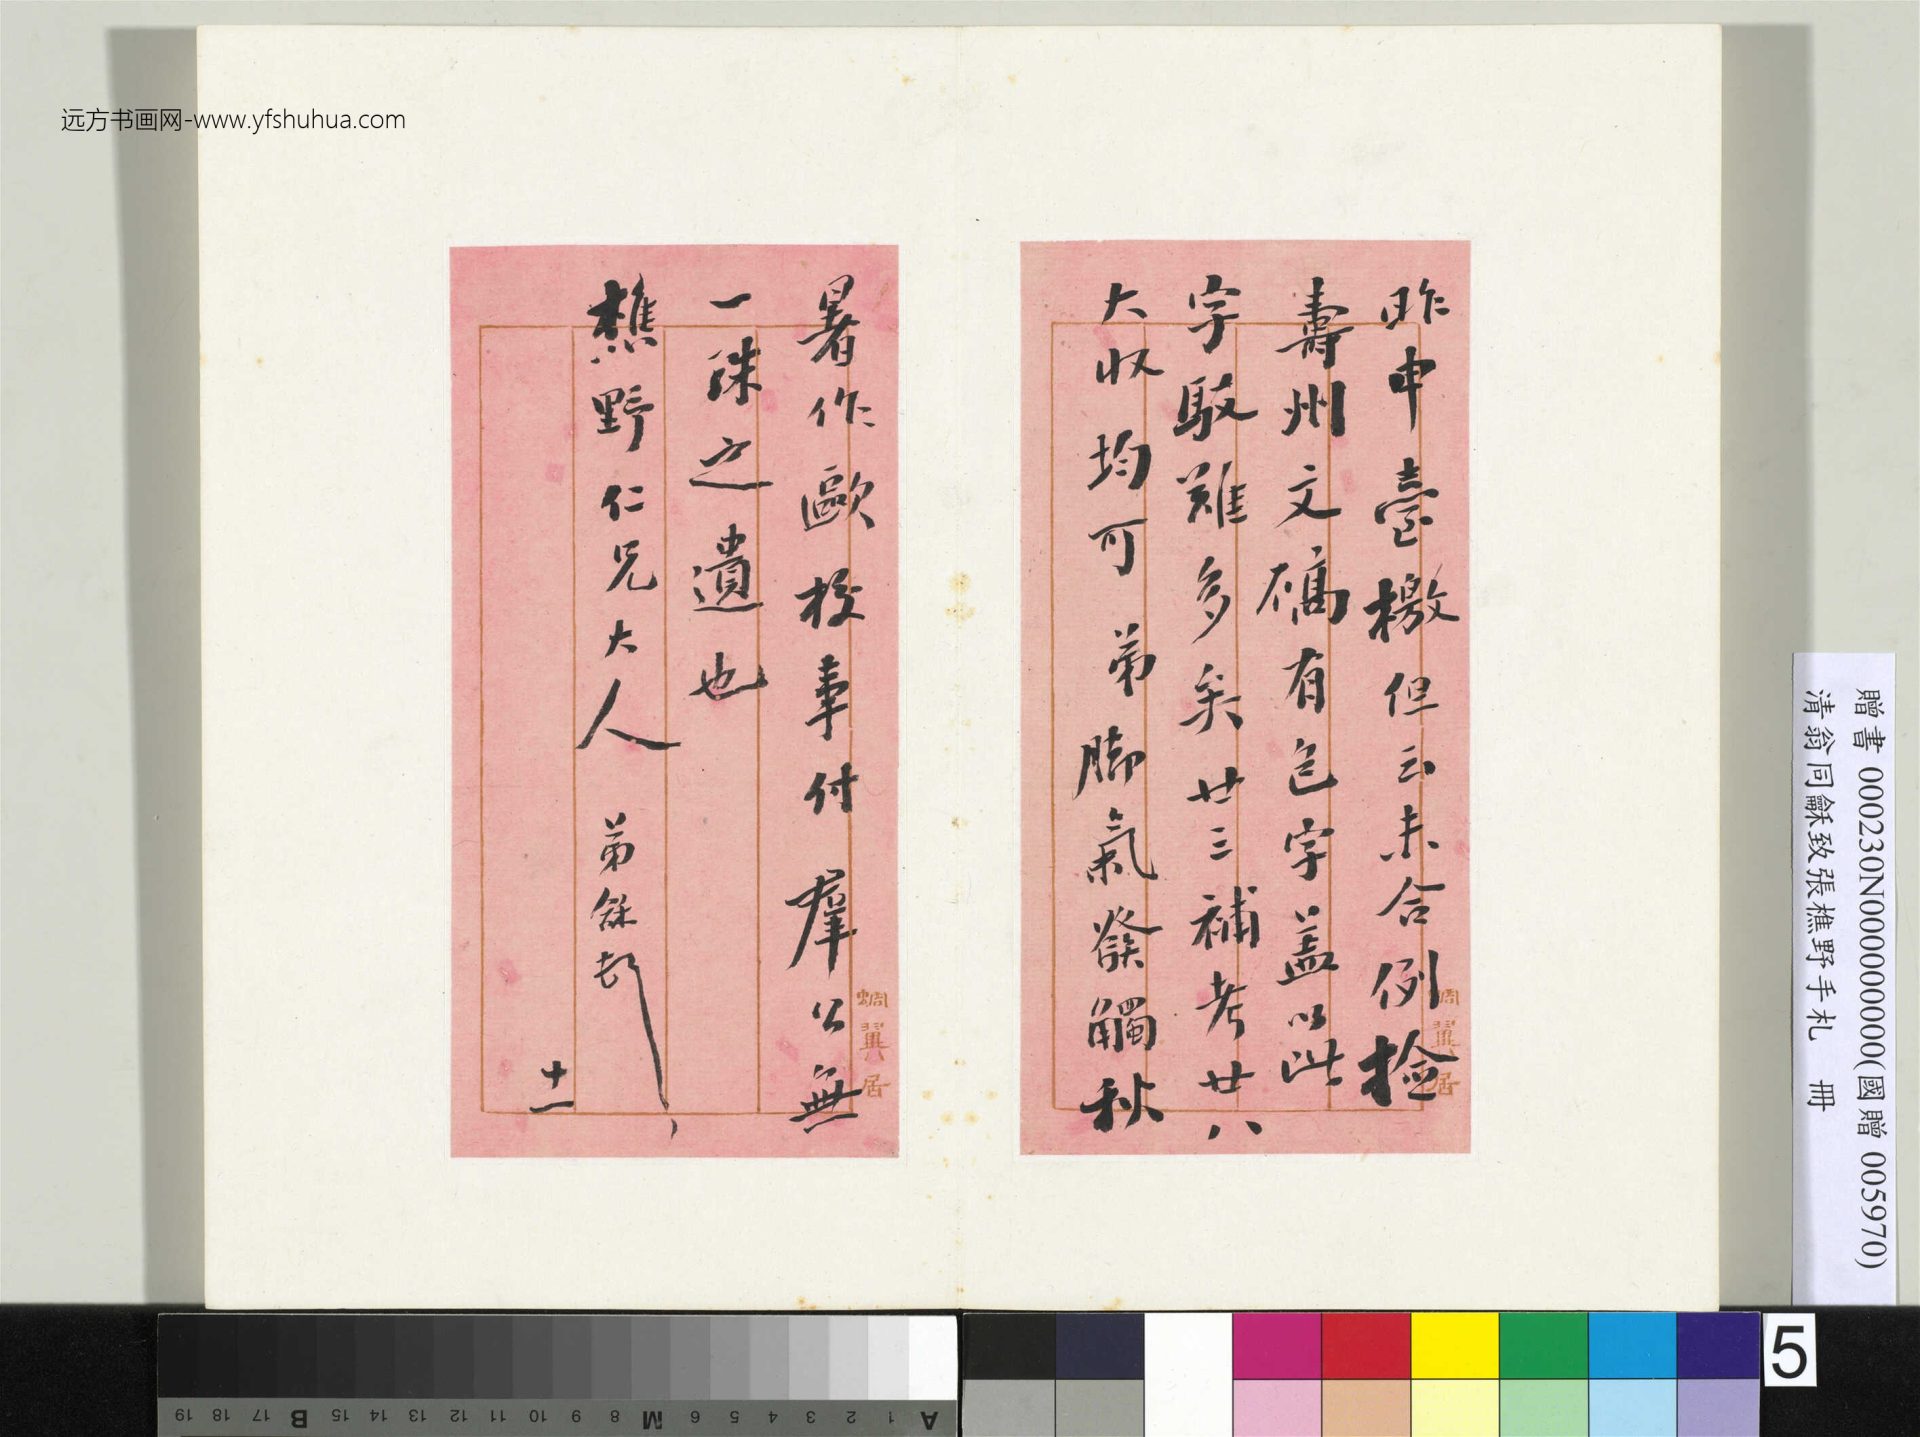 远方书画网-www.yfshuhua.com
昨申臺檄但云未合例撿
壽州文稿有包字蓋以此
字駮難多矣廿三補考廿八
大收均可 弟脚氣發觸秋
暑作歐校事付 羣公無
一殊之遺也
樵野仁兄大人 弟龢頓
十一
蜩翼居
蜩翼居
贈書 000230N000000000(國贈 005970)
清翁同龢致張樵野手札 冊
5
A 1 2 3 4 5 6 M 8 9 10 11 12 13 14 15 B 17 18 19